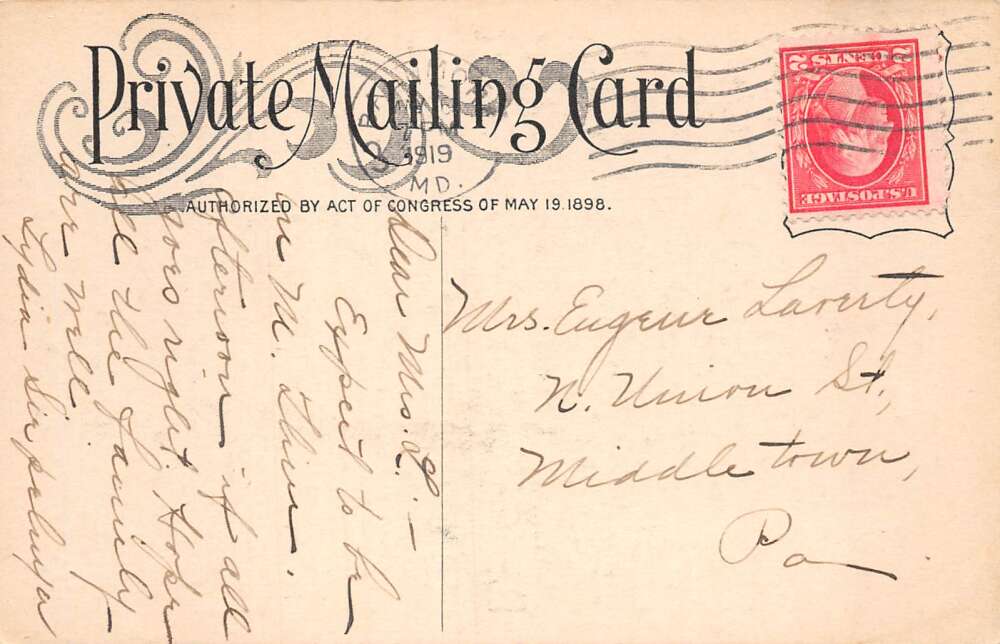 Private Mailing Card
AUTHORIZED BY ACT OF CONGRESS OF MAY 19.1898.
1919
MD.
2 CENTS 2
U.S. POSTAGE
Dear Mrs. L. –
Expect to be
on N. Thur.
afternoon if all
goes right. Hope
all the family
are well
Lydia
Mrs. Eugene Laverty,
N. Union St,
Middletown,
Pa